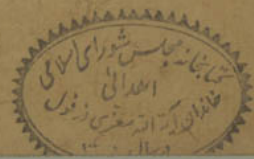 کتابخانه مجلس شورای اسلامی
اهدائی
خاندان آیة الله معزی دزفولی
در سال